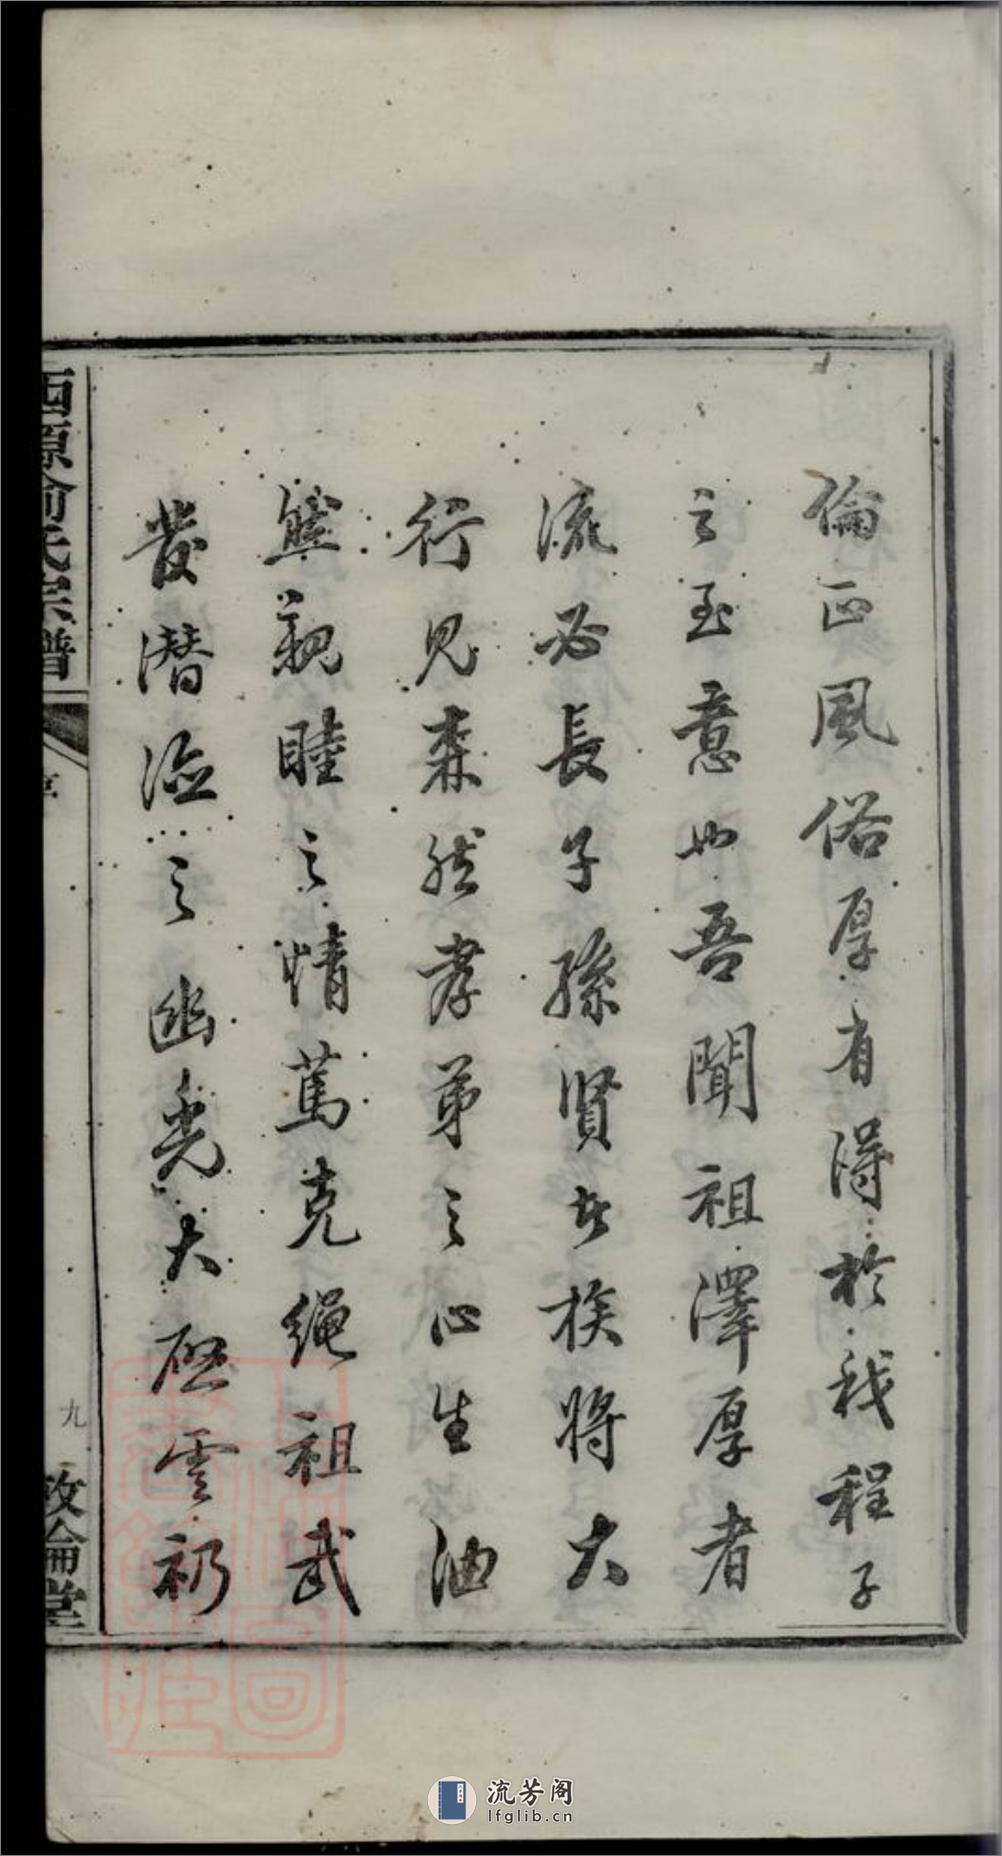 倫正風俗厚有得於我程子
之至意也吾聞祖澤厚者
流必長子孫賢者族將大
行見森然孝弟之心生油
然親睦之情篤克繩祖武
發潛德之幽光大啟雲礽
西源俞氏宗譜
序
九
敦倫堂
流芳阁
lfglib.cn